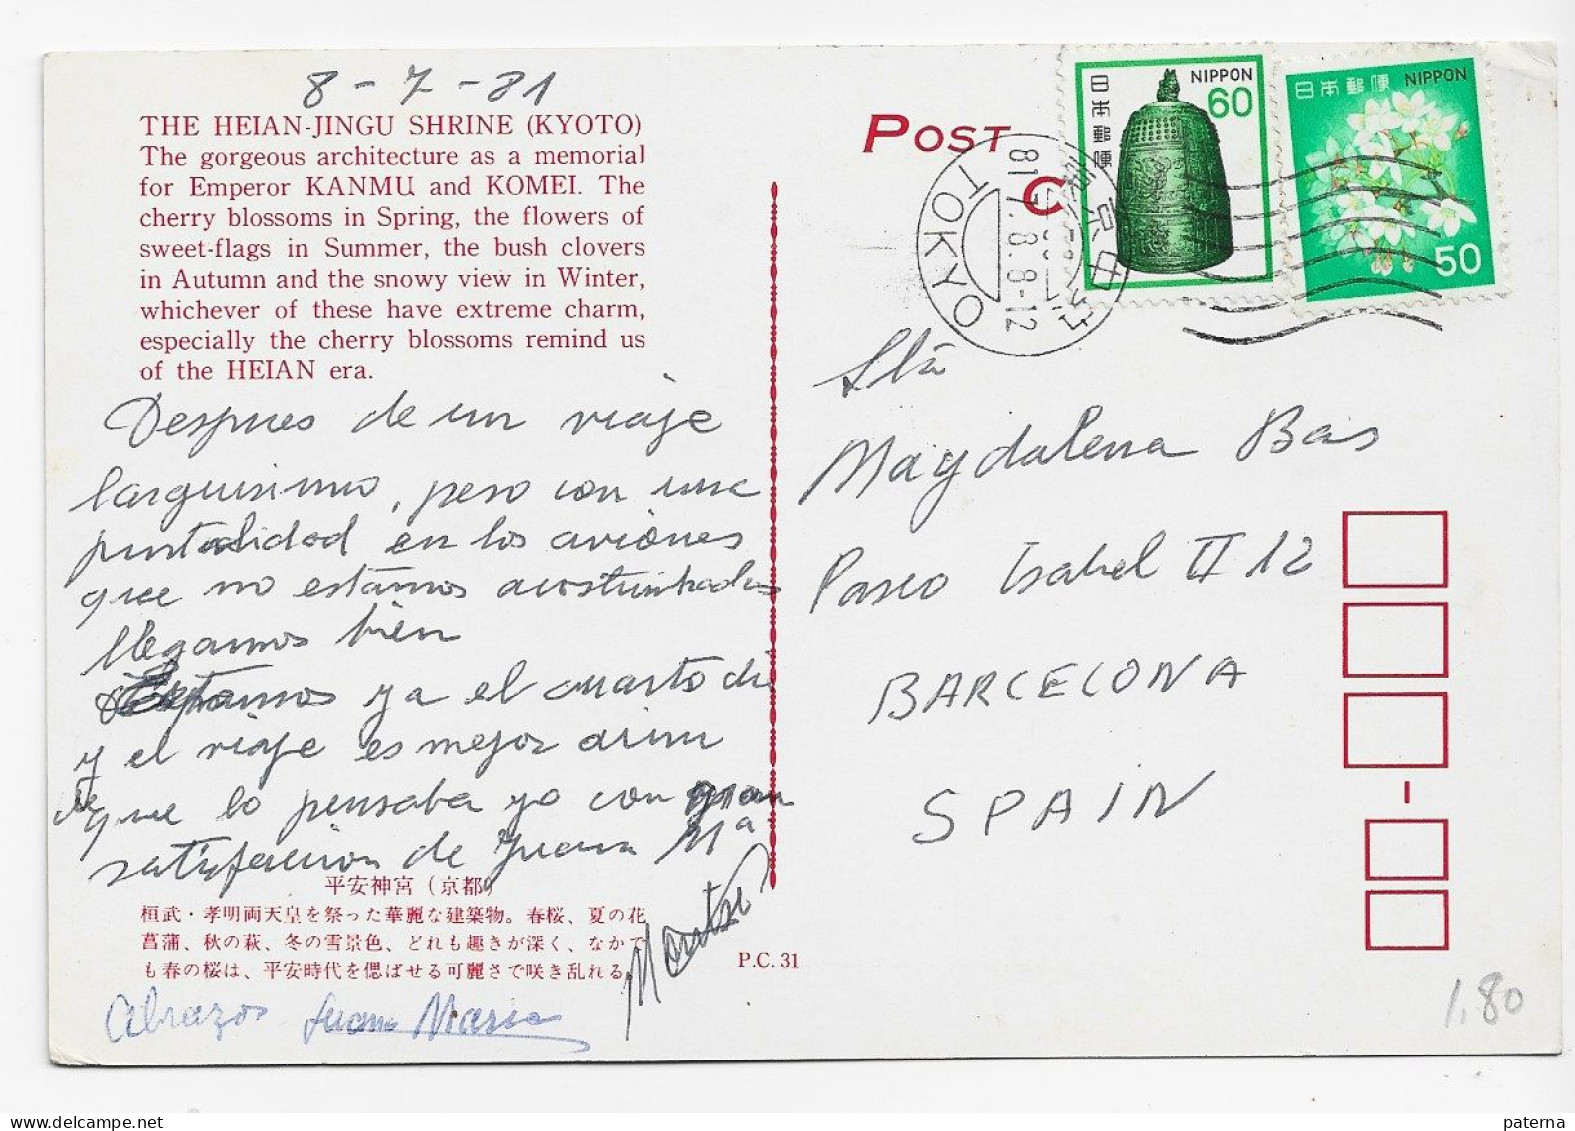 8-7-81
THE HEIAN-JINGU SHRINE (KYOTO)
The gorgeous architecture as a memorial
for Emperor KANMU and KOMEI. The
cherry blossoms in Spring, the flowers of
sweet-flags in Summer, the bush clovers
in Autumn and the snowy view in Winter,
whichever of these have extreme charm,
especially the cherry blossoms remind us
of the HEIAN era.
Despues de un viaje
larguisimo, pero con una
puntalidad en los aviones
que no estamos acostumbrados
llegamos bien
Estamos ya el cuarto di
y el viaje es mejor aun
de que lo pensaba yo con gran
satisfaccion de Juana Mª
平安神宮（京都）
桓武・孝明両天皇を祭った華麗な建築物。春桜、夏の花
菖蒲、秋の萩、冬の雪景色、どれも趣きが深く、なかで
も春の桜は、平安時代を偲ばせる可麗さで咲き乱れる。
Abrazos Juana Maria
Montse
P.C. 31
POST C
TOKYO
81.7.8.8-12
東京中央
日本郵便 NIPPON 60
日本郵便 NIPPON 50
Stª
Magdalena Bas
Paseo Isabel II 12
BARCELONA
SPAIN
1,80
delcampe.net
paterna